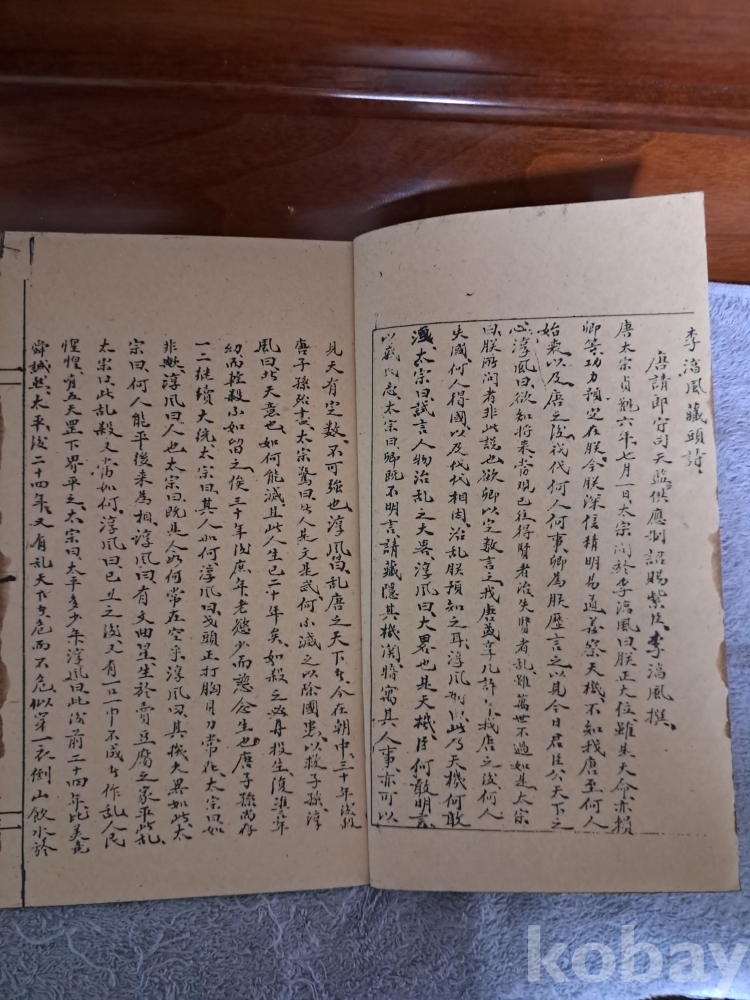 李淳風藏頭詩
唐請郎守司天監供應制詔賜紫臣李淳風撰
唐太宗貞觀六年七月一日太宗问於李淳風曰朕正大位雖朱天命亦損
卿等功力預定在朕今朕深信精明易道善察天機不知我唐至何人
始衰以及唐之後我代何人何事卿為朕歷言之以見今日君臣公天下之
心淳風曰欲知将來當現已往得賢者治失賢者乱雖萬世不過如是太宗
曰朕所问者非此說也欲卿以定数言之我唐盛享几許年我唐之後何人
失國何人得國以及代代相因治乱朕預知之耳淳風对以此乃天機何敢
洩太宗曰試言人物治乱之大異淳風曰大畧也是天機臣何敢明言
以太宗曰卿既不明言請藏隱其機関暗寓其人事亦可以
見天有定数不可強也淳風曰乱唐之天下者今在朝中三十年後殺
唐子孫殆盡太宗驚曰此人是文是武何不滅之以除國患以救子孫淳
風曰此天意也如何能滅且此人生已二十年矣如殺之必再投生復準年
幼而輕殺不如留之俟三十年後庶年老慾少而慈念生也唐子孫尚存
一二继续大統太宗曰其人如何淳風曰戈頭正打胸月刀常在太宗曰如
非歟淳風曰人也太宗曰既是人如何常在空乎淳風曰其機大異如此太
宗曰何人能平後來為相淳風曰有文曲星生於賣豆腐之家平此乱
太宗曰此乱殺又當如何淳風曰已丑之後又有一口一巾不成者作乱人民
惶惶有五天罡下界平之太宗曰太平多少年淳風曰此後前二十四年比美堯
舜誠然太平後二十四年又有乱天下者危而不危似穿一衣倒山飲水於
kobay